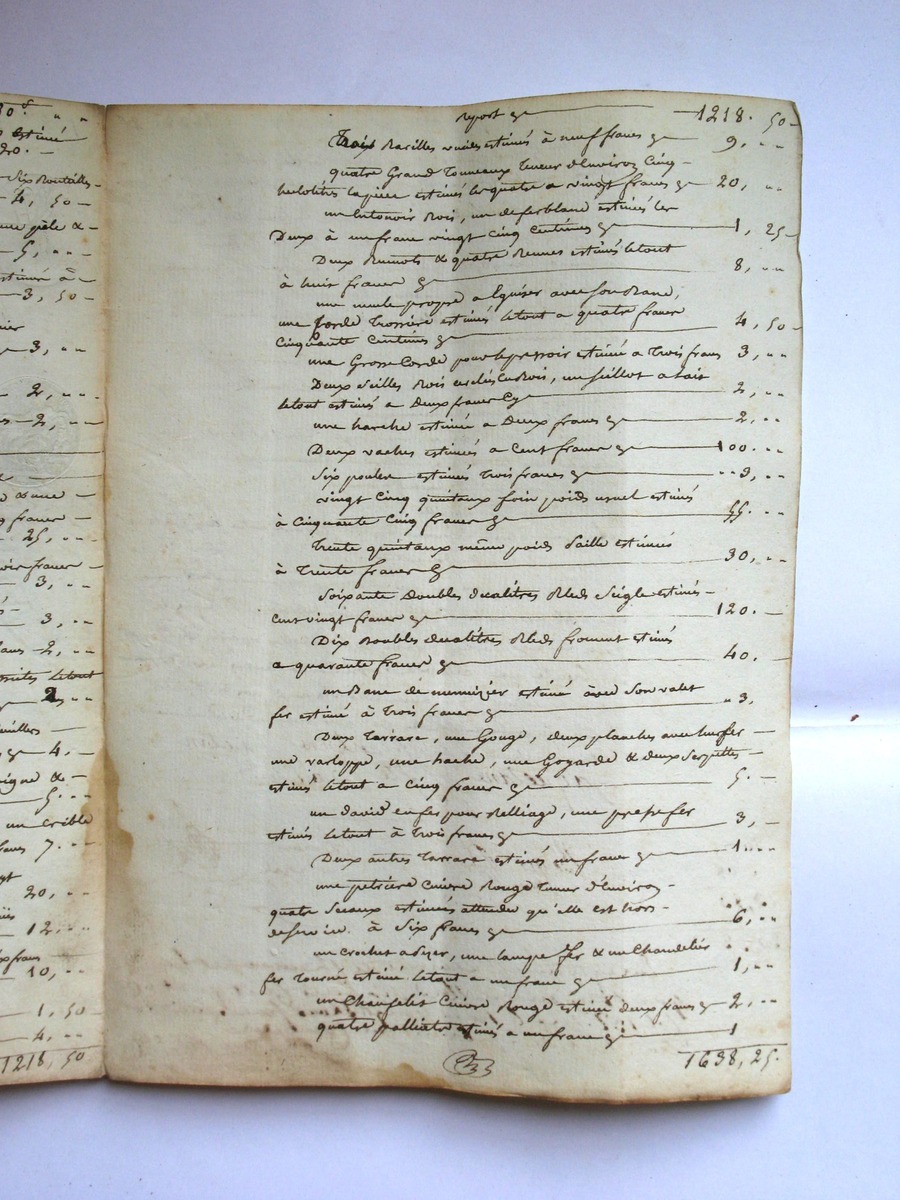 10 s " "
estimé
20. -
six Bouteilles -
4, 50 -
une pêle & -
5, " " -
estimés à -
3, 50 -
3, " "
2, " "
2, " "
franc -
25, " -
trois francs -
3, " "
3, " "
2, " "
letout
2 " "
4. -
vigne & -
5. " "
un Crible
francs 7. " "
20, " "
12. " "
dix francs
10, " "
1, 50
4, " "
1218, 50
report 1218. 50 -
Trois Barilles vuides estimés à neuf francs 9, " "
quatre Grand Tonneaux Teneur d'Environ Cinq -
hectolitres la pièce estimés les quatre a vingt francs 20, " "
un Entonoir Bois, un de ferblanc estimés les
Deux à un franc vingt cinq centimes 1, 25 -
Deux & quatre Bennes estimés letout
à huit francs 8, " "
une meule propre a Eguiser avec son Banc,
une Corde estimés letout a quatre francs
Cinquante Centimes 4, 50 -
une Grosse Corde pour le pressoir estimée a Trois francs 3, " "
Deux seilles Bois cerclés en Bois, un seillot a lait
letout estimés a Deux francs Cy 2, " "
une harche estimée a Deux francs 2, " "
Deux vaches estimées a Cent francs 100. " "
Six poules estimées Trois francs " " 3, " "
vingt Cinq quintaux foin poids usuel estimés
à Cinquante Cinq francs 55. " "
Trente quintaux même poids Paille estimés
à Trente francs 30, " "
Soixante Doubles decalitres Bleds Seigle estimés -
Cent vingt francs 120. -
Dix Doubles decalitres Bleds froment estimés
a quarante francs 40. -
un Banc de menuizier estimé avec son valet
fer estimé à Trois francs " 3,
Deux Tarrare, une Gouge, deux planches avec leur fer
une varloppe, une hache, une Goyarde & deux serpettes -
estimés letout a Cinq francs 5. -
un david en fer pour Relliage, une fer
estimés letout à Trois francs 3, -
Deux autres Tarrare estimés un franc 1. " "
une petrière Cuivre Rouge Teneur d'Environ -
quatre Seaux estimées attendu qu'elle est hors -
de service. à Six francs 6, " "
un crochet a pezer, une lampe fer & un Chandelier
fer Tourné estimé letout a un franc 1, " "
un Chaufelit Cuivre Rouge estimé Deux francs 2, " "
quatre palliats estimés a un franc 1
1638, 25.